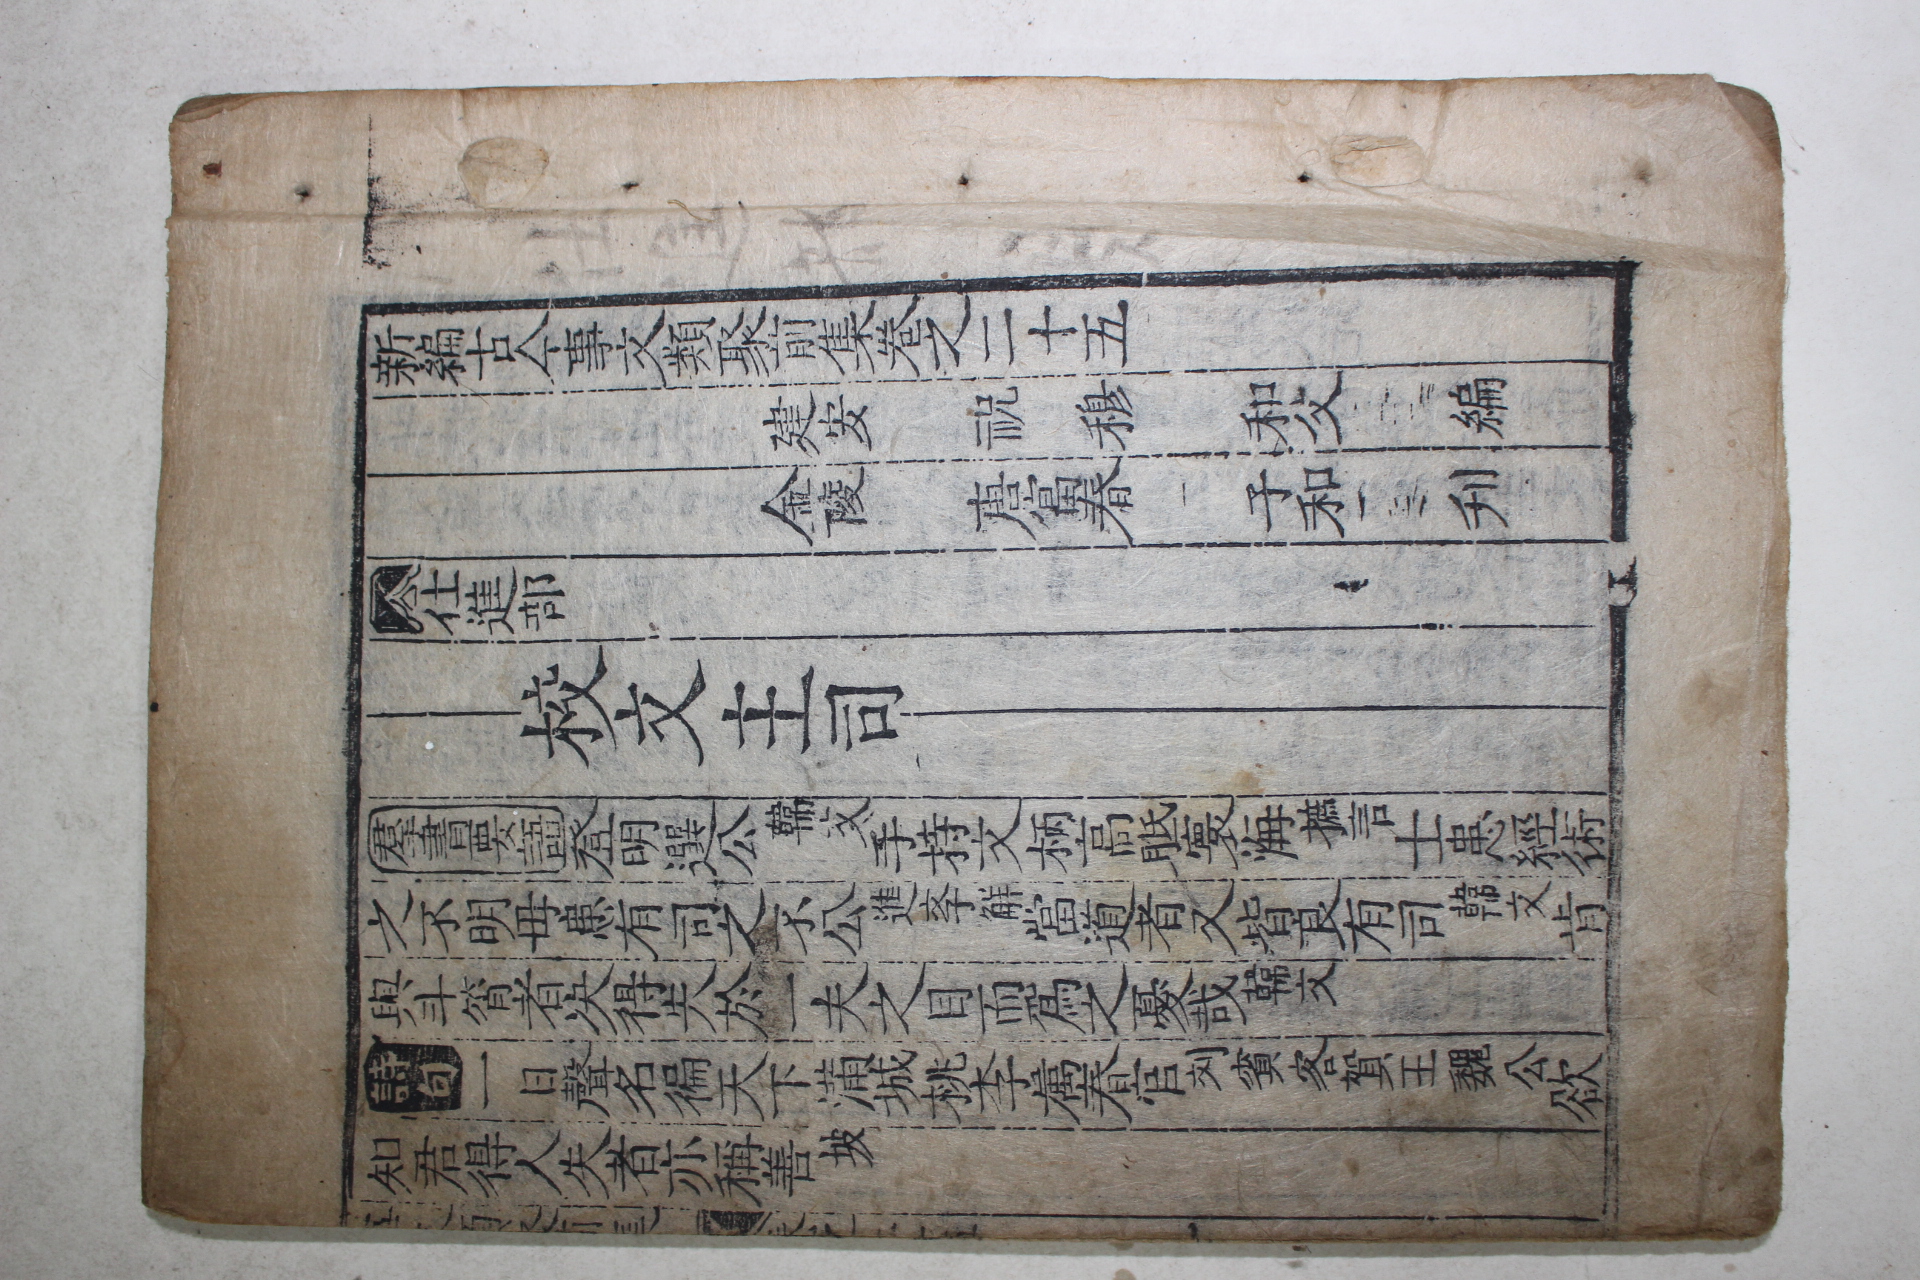 新編古今事文類聚前集卷之二十五
建安 祝 穆 和父 編
金陵 唐富春 子和 刊
仕進部
校文主司
羣書要語登明選公韓文手持文柄高眡寰海摭言士患經術
之不明毋患有司之不公進李解當道者又皆良有司韓文肯
與斗筲者决得失於一夫之目而爲之憂哉韓文
詩句一日聲名徧天下滿城桃李屬春官刘賓客賀王魏公欲
知君得人失者亦稱善坡